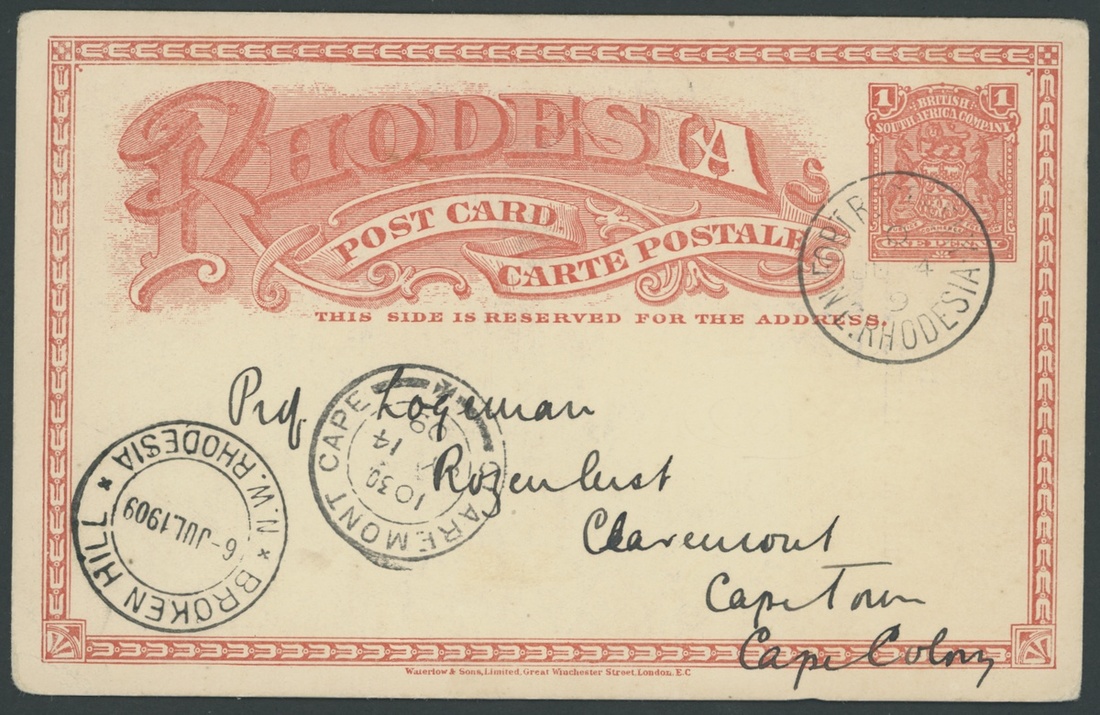 RHODESIA
POST CARD
CARTE POSTALE
THIS SIDE IS RESERVED FOR THE ADDRESS.
1 1
BRITISH
SOUTH AFRICA COMPANY
ONE PENNY
N.E. RHODESIA
4
9
Prof. Logeman
Rozenhurst
Claremont
Cape Town
Cape Colony
CLAREMONT CAPE
10 30
14
09
BROKEN HILL * N.W. RHODESIA *
6-JUL 1909
Waterlow & Sons, Limited, Great Winchester Street, London. E.C